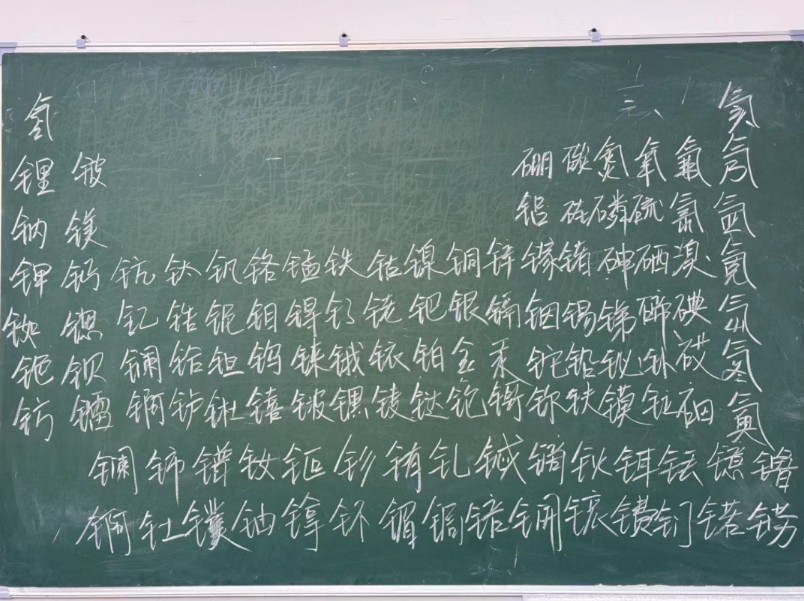 三、
氢 氦
锂 铍 硼 碳 氮 氧 氟 氖
钠 镁 铝 硅 磷 硫 氯 氩
钾 钙 钪 钛 钒 铬 锰 铁 钴 镍 铜 锌 镓 锗 砷 硒 溴 氪
铷 锶 钇 锆 铌 钼 锝 钌 铑 钯 银 镉 铟 锡 锑 碲 碘 氙
铯 钡 镧 铪 钽 钨 铼 锇 铱 铂 金 汞 铊 铅 铋 钋 砹 氡
钫 镭 锕 𬬻 𬭊 𬭳 𬭛 𬭶 鿏 𫟼 𬬭 鿔 鿭 𫓧 镆 𫟷 鿬 鿫
镧 铈 镨 钕 钷 钐 铕 钆 铽 镝 钬 铒 铥 镱 镥
锕 钍 镤 铀 镎 钚 镅 锔 锫 锎 锿 镄 钔 锘 铹